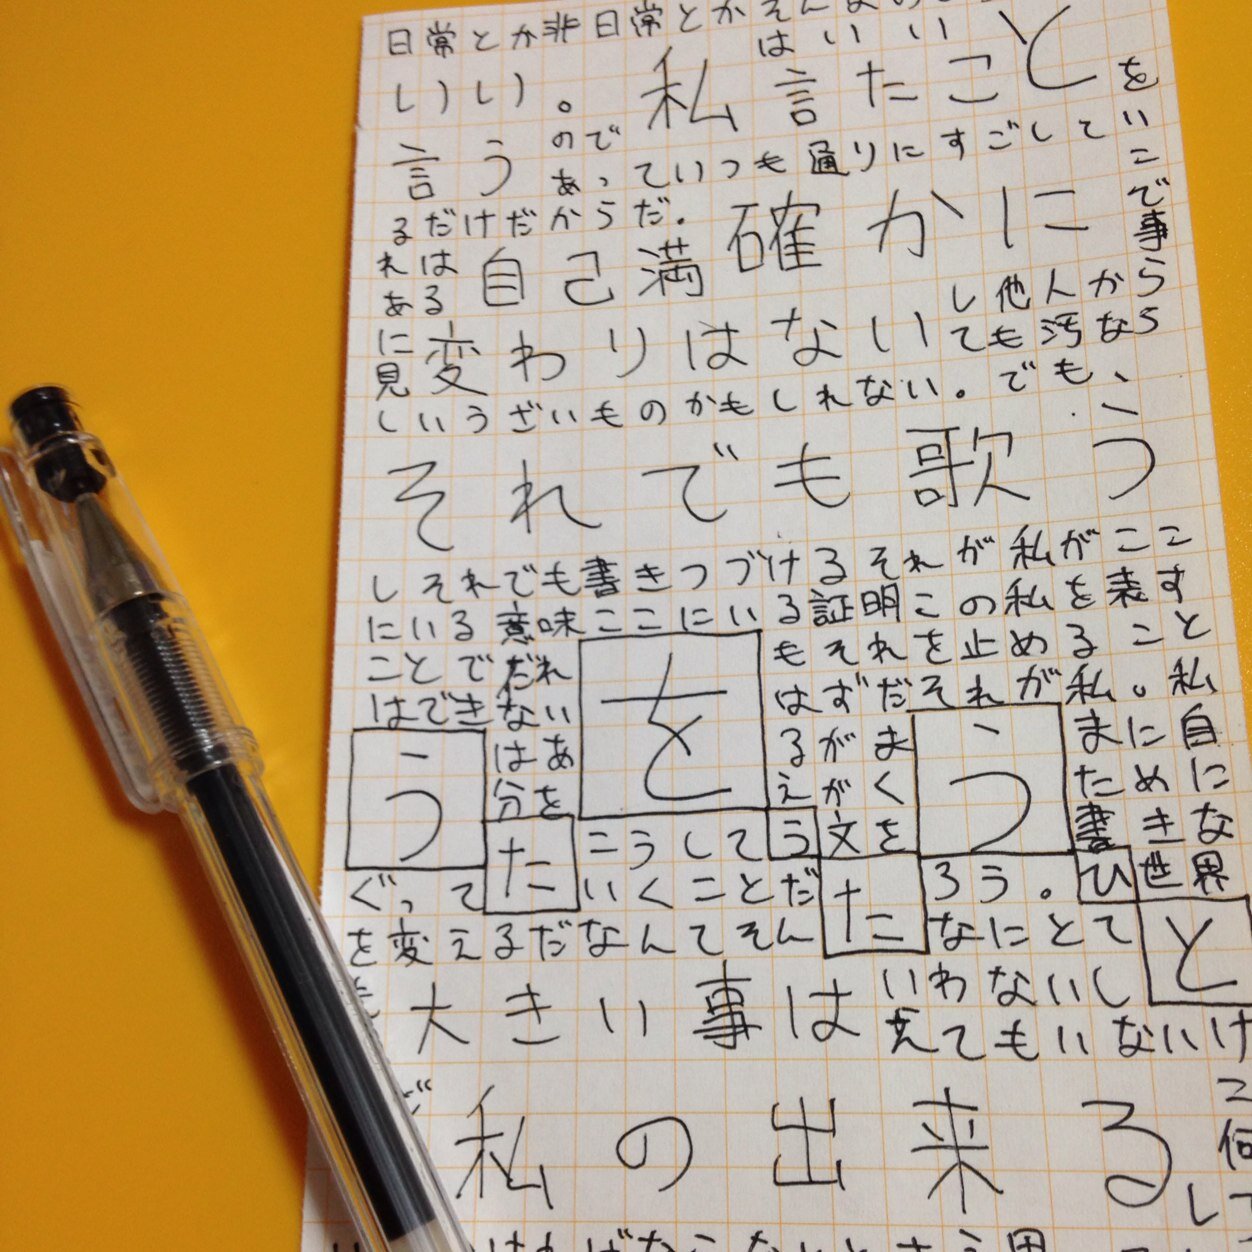 日常とか非日常とかそんな
はいい
いい。私言たことを
のでい
言うあっていつも通りにすごしてこ
るだけだからだ。確かにで
れは自己満事
あるし他人から
に変わりはないても汚なら
見
しいうざいものかもしれない。でも、
それでも歌う
しそれでも書きつづけるそれが私がここ
にいる意味ここにいる証明この私を表す
ことでだれもそれを止めること
はできないをはずだそれが私。私
はあるがまうまに自
う分をえがくために
たこうしてう文を書きな
ぐっていくことだたろう。ひ世界
を変えるだなんてそんなにとてと
大きい事はいわないし
えてもいないけ
私の出来る
何
して